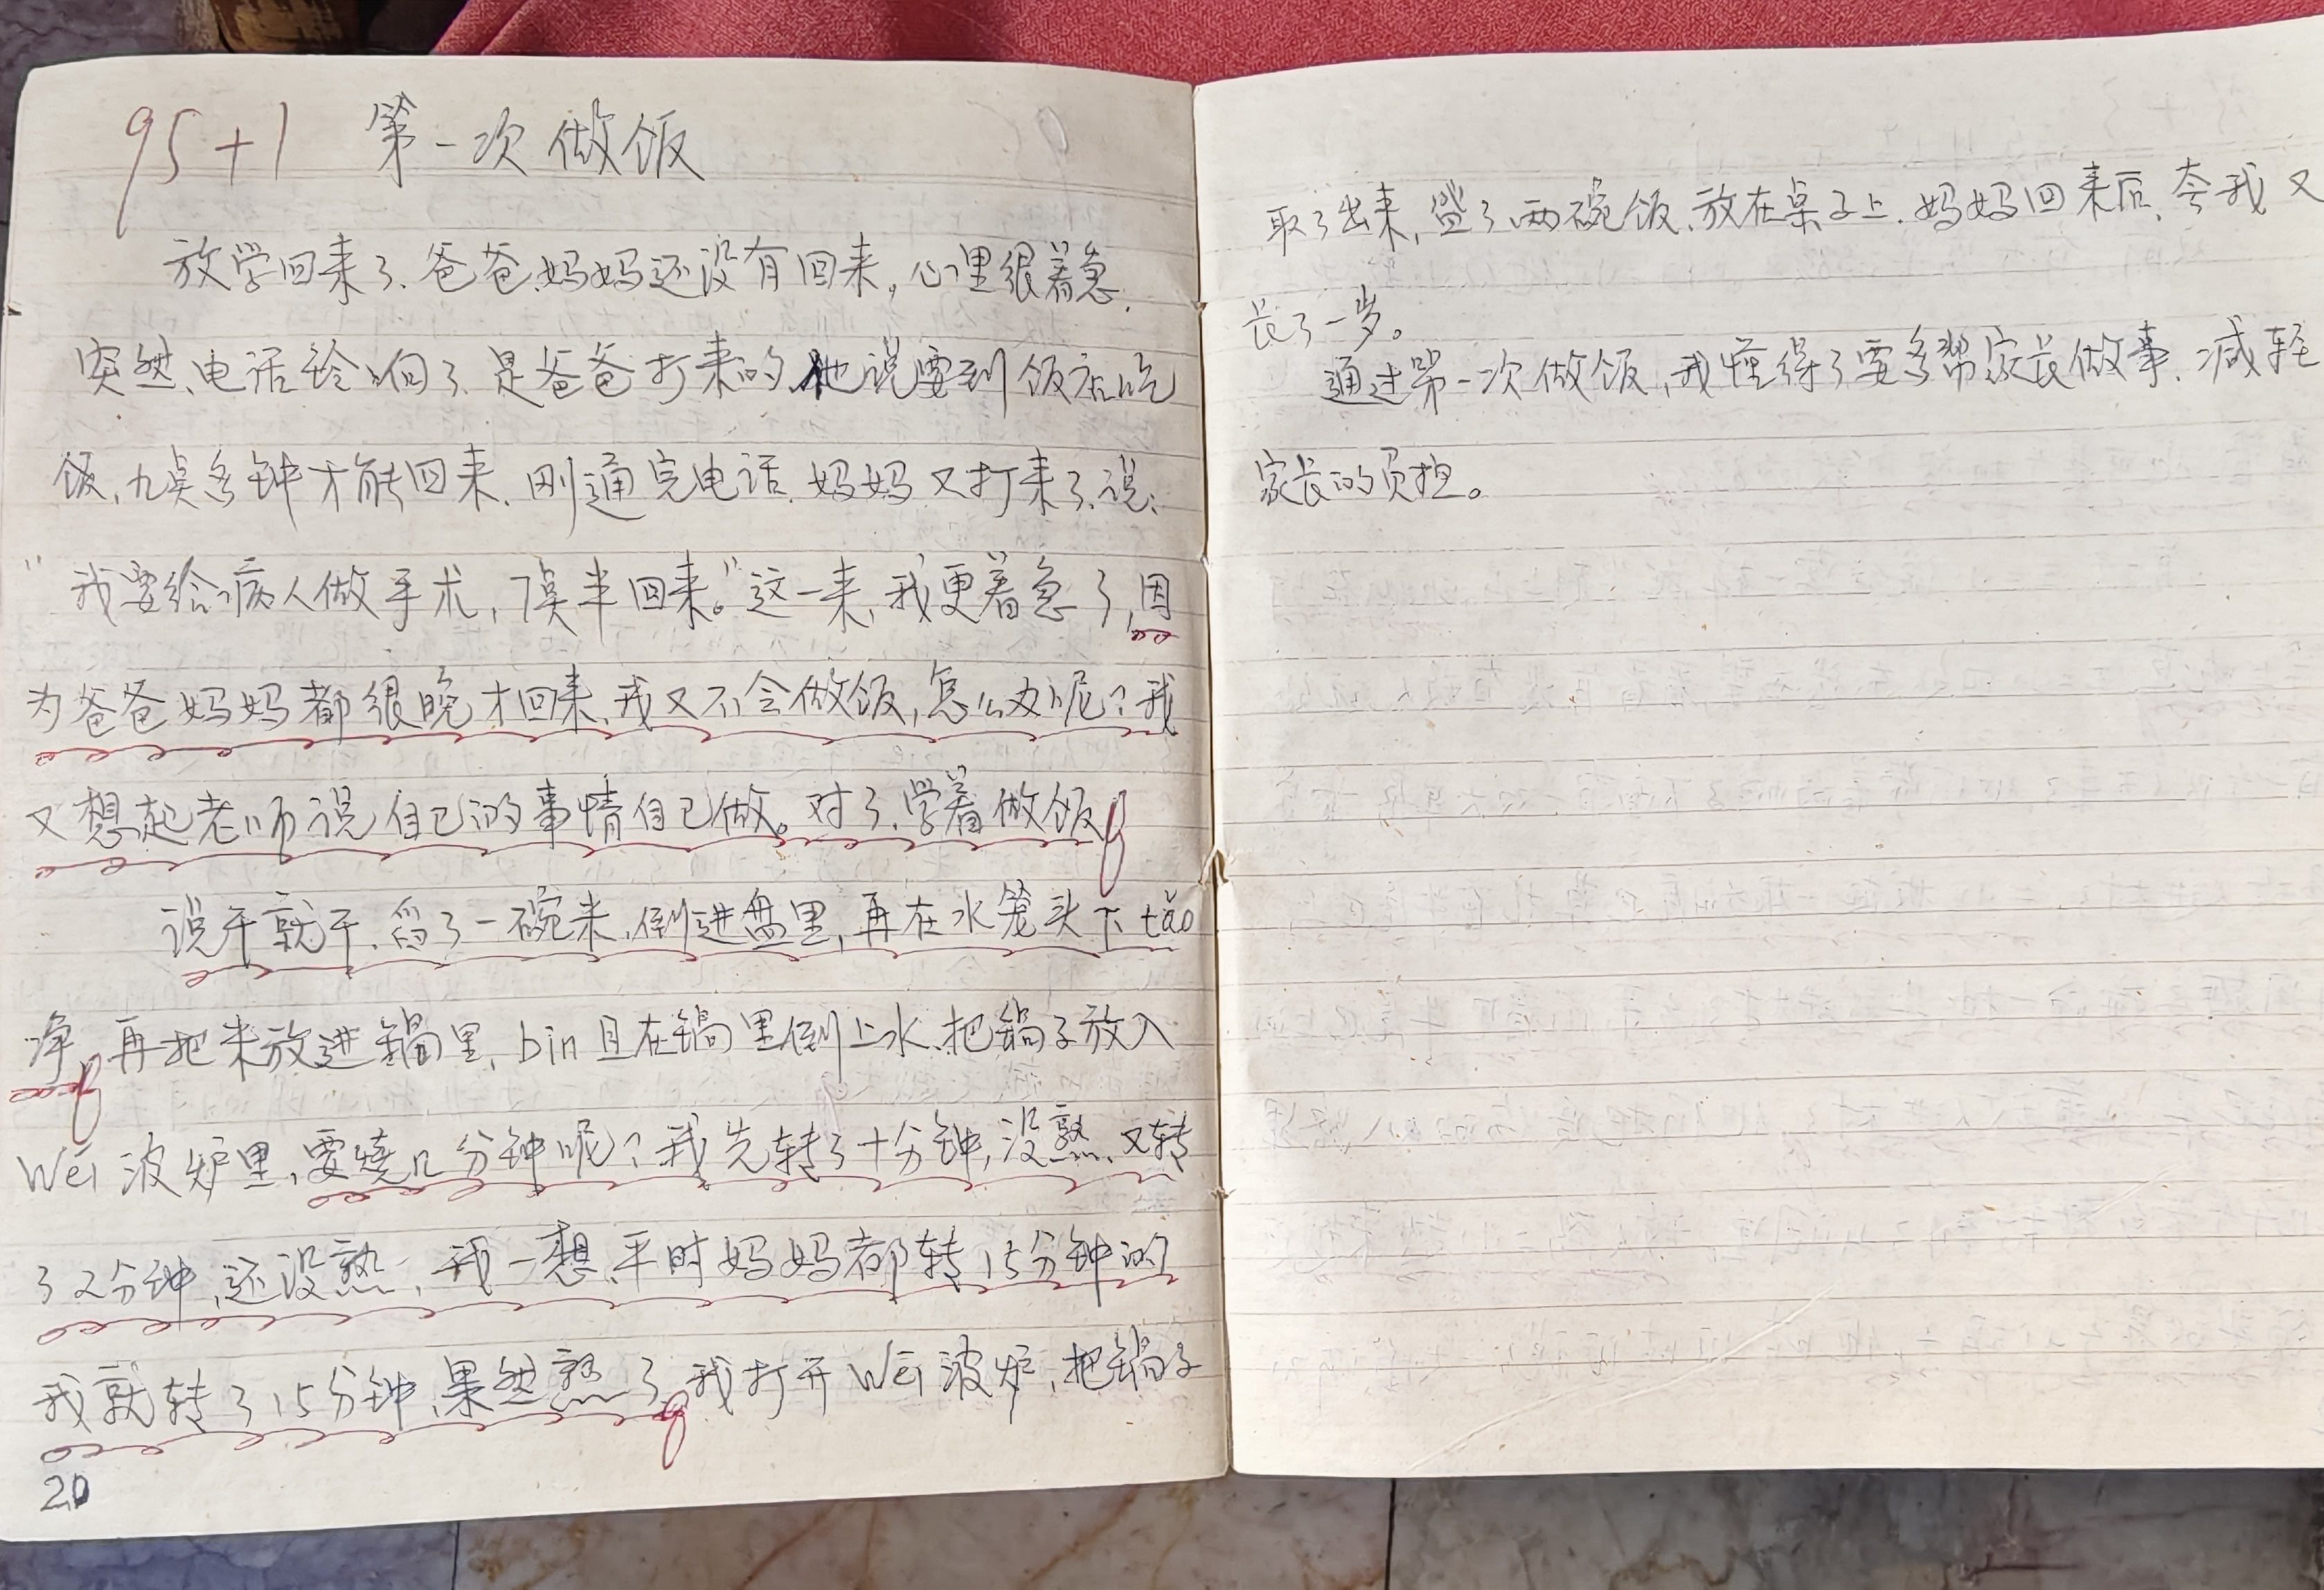 95+1 第一次做饭
放学回来了、爸爸、妈妈还没有回来，心里很着急.
突然、电话铃响了、是爸爸打来的、他说要到饭店吃
饭、九点多钟才能回来、刚通完电话、妈妈又打来了、说：
"我要给病人做手术，7点半回来。"这一来，我更着急了，因
为爸爸妈妈都很晚才回来、我又不会做饭，怎么办呢？我
又想起老师说自己的事情自己做。对了、学着做饭
说干就干、舀了一碗米、倒进盘里，再在水笼头下tǎo
净，再把米放进锅里，bìn且在锅里倒上水、把锅子放入
Wēi波炉里、要烧几分钟呢？我先转了十分钟，没熟、又转
了2分钟，还没熟，我一想、平时妈妈都转15分钟的
我就转了15分钟、果然熟了，我打开Wēi波炉，把锅子
20
取了出来，盛了两碗饭、放在桌子上、妈妈回来后、夸我又
长了一岁。
通过第一次做饭，我懂得了要多帮家长做事、减轻
家长的负担。